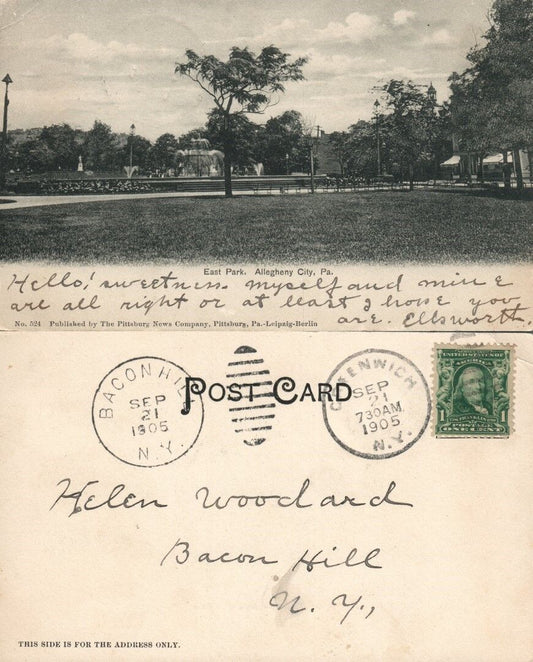 East Park. Allegheny City, Pa.
Hello! sweetness myself and mine
are all right or at least I hope you
No. 524 Published by The Pittsburg News Company, Pittsburg, Pa.-Leipzig-Berlin
are. Ellsworth.
POST CARD
BACON HILL
SEP
21
1905
N.Y.
GREENWICH
SEP
21
730AM
1905
N.Y.
1
POSTAGE
ONE CENT
Helen Woodard
Bacon Hill
N. Y.,
THIS SIDE IS FOR THE ADDRESS ONLY.